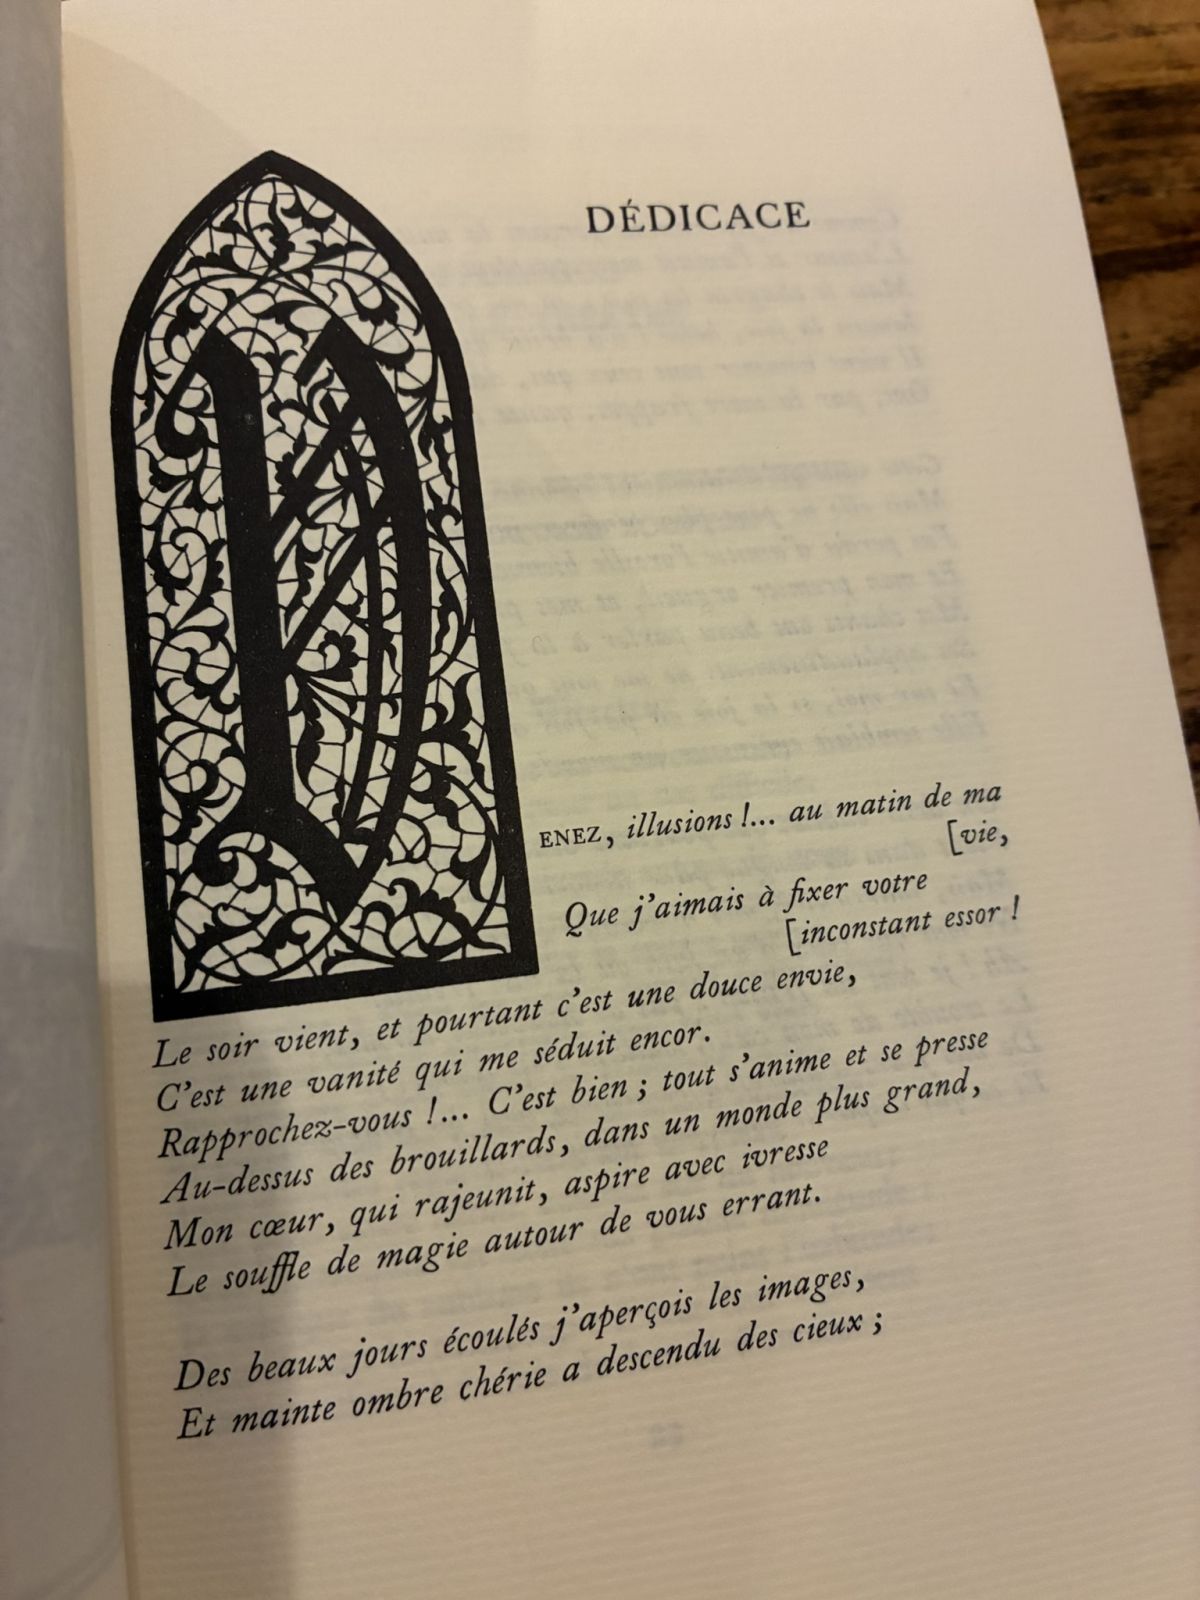 DÉDICACE
VENEZ, illusions !... au matin de ma
[vie,
Que j'aimais à fixer votre
[inconstant essor !
Le soir vient, et pourtant c'est une douce envie,
C'est une vanité qui me séduit encor.
Rapprochez-vous !... C'est bien ; tout s'anime et se presse
Au-dessus des brouillards, dans un monde plus grand,
Mon cœur, qui rajeunit, aspire avec ivresse
Le souffle de magie autour de vous errant.
Des beaux jours écoulés j'aperçois les images,
Et mainte ombre chérie a descendu des cieux ;